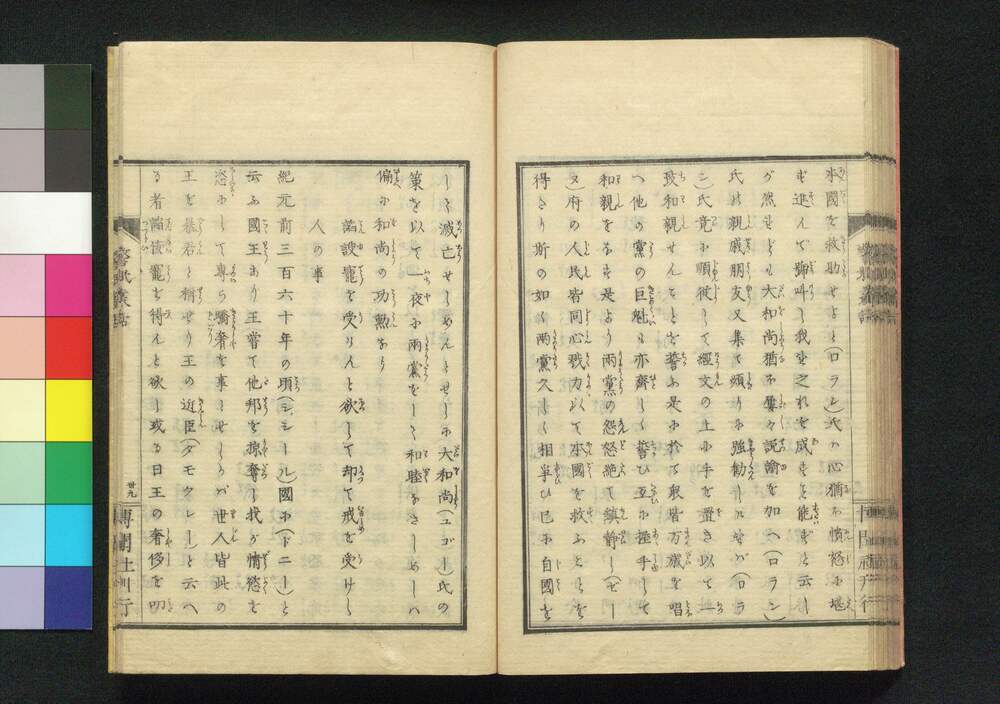 本國を救助せよと(ロラン)氏の心猶ホ憤怒ニ堪
ず進んで號叫し我豈之れを成すこと能ずと云ー
が然せども大和尚猶ホ屢々説諭を加へ(ロラン)
氏の親戚朋友又集て頻りニ強勧しけれバ(ロラ
ン)氏竟ニ順從して經文の上ニ手を置き以て一
致和親せんことを誓ふ是ニ於て衆皆万歳を唱
へ他の黨の巨魁も亦齊しく誓ひ互ニ握手して
和親をなす是より兩黨の怨怒絶て鎮静し(ゼー
ヌ)府の人民皆同心戮力以て本國を救ふことを
得たり斯の如く兩黨久しく相爭ひ已ニ自國を
して滅亡せしめんとせしニ大和尚(ユゴー)氏の
策を以て一夜ニ兩黨をして和睦なさしめしハ
偏ニ和尚の功勲なり
諂諛寵を受けんと欲して却て戒を受けし
人の事
紀元前三百六十年の頃(シシール)國ニ(ドニー)と
云ふ國王あり王嘗て他邦を掠奪し我が情慾を
恣ニして専ら驕奢を事とせしかバ世人皆此の
王を暴君と稱せり王の近臣(ダモクレー)と云へ
る者諂諛寵を得んと欲し或る日王の奢侈を叨
警眠叢話
廿九
博聞社刊行